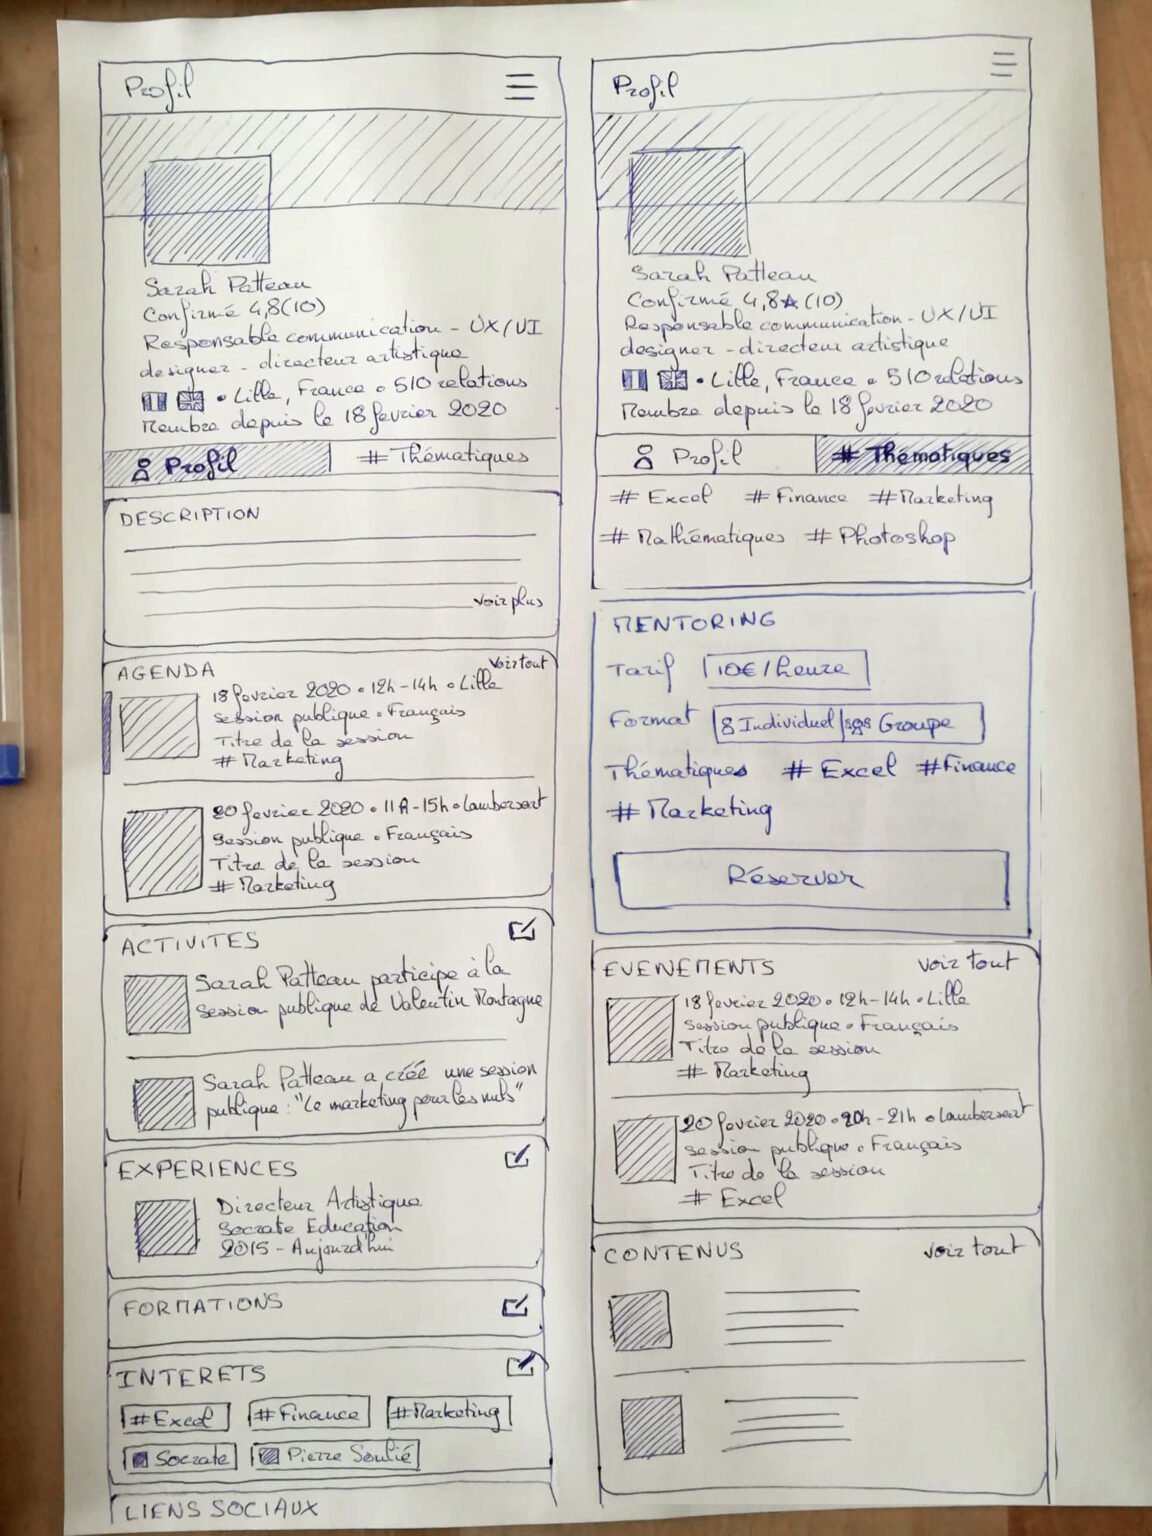 Profil
Sarah Patteau
Confirmé 4,8(10)
Responsable communication - UX/UI
designer - directeur artistique
• Lille, France • 510 relations
Membre depuis le 18 fevrier 2020
Profil
# Thématiques
DESCRIPTION
voir plus
AGENDA
Voir tout
18 fevrier 2020 • 12h-14h • Lille
session publique • Français
Titre de la session
# Marketing
20 fevrier 2020 • 11h-15h • Lambersart
session publique • Français
Titre de la session
# Marketing
ACTIVITES
Sarah Patteau participe à la
session publique de Valentin Montagne
Sarah Patteau a créé une session
publique : "Le marketing pour les nuls"
EXPERIENCES
Directeur Artistique
Socrate Education
2015 - Aujourd'hui
FORMATIONS
INTERETS
#Excel
#Finance
#Marketing
Socrate
Pierre Soulié
LIENS SOCIAUX
Profil
Sarah Patteau
Confirmé 4,8★(10)
Responsable communication - UX/UI
designer - directeur artistique
• Lille, France • 510 relations
Membre depuis le 18 fevrier 2020
Profil
# Thématiques
# Excel # Finance # Marketing
# Mathématiques # Photoshop
MENTORING
Tarif 10€/heure
Format Individuel Groupe
Thématiques # Excel #Finance
# Marketing
Réserver
EVENEMENTS
voir tout
18 fevrier 2020 • 12h-14h • Lille
session publique • Français
Titre de la session
# Marketing
20 fevrier 2020 • 20h-21h • Lambersart
session publique • Français
Titre de la session
# Excel
CONTENUS
voir tout